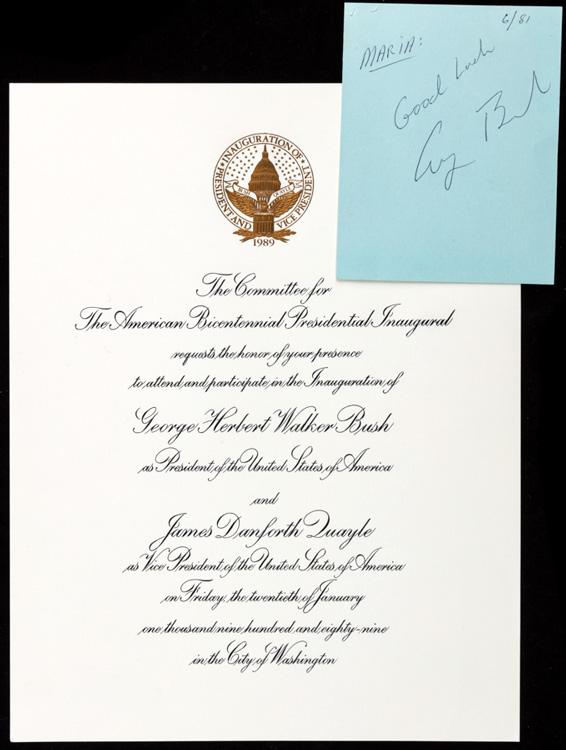 6/81
MARIA:
Good Luck
G Bush
INAUGURATION OF
PRESIDENT AND VICE PRESIDENT
BUSH QUAYLE
1989
The Committee for
The American Bicentennial Presidential Inaugural
requests the honor of your presence
to attend and participate in the Inauguration of
George Herbert Walker Bush
as President of the United States of America
and
James Danforth Quayle
as Vice President of the United States of America
on Friday, the twentieth of January
one thousand nine hundred and eighty-nine
in the City of Washington